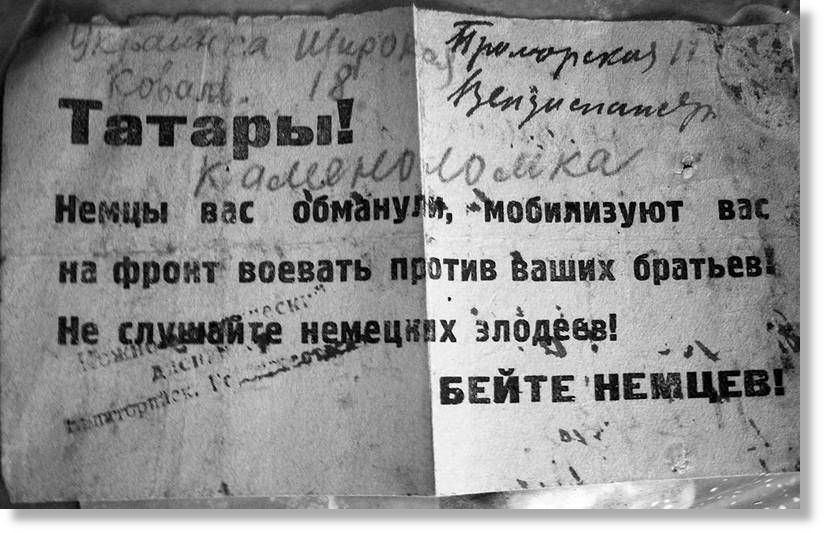 Украинса Широкая
Ковал. 18
Приморская 11
Татары!
каменоломка
Немцы вас обманули, мобилизуют вас
на фронт воевать против ваших братьев!
Не слушайте немецких злодеев!
БЕЙТЕ НЕМЦЕВ!